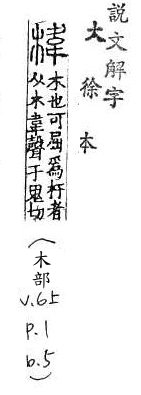 説文解字
大徐本
椲 木也可屈爲杅者
从木韋聲于鬼切
（木部
v.6上
p.1
b.5）